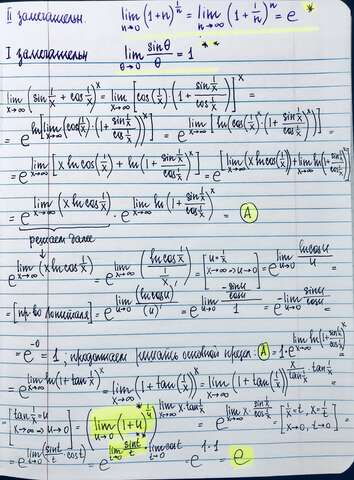 II замечательн. lim_{n→0} (1+n)^{1/n} = lim_{n→∞} (1+1/n)^n = e *
I замечательн lim_{θ→0} sinθ/θ = 1 **
lim_{x→∞} (sin 1/x + cos 1/x)^x = lim_{x→∞} [cos(1/x) · (1 + sin 1/x / cos 1/x)]^x =
= e^{ln[lim_{x→∞} (cos(1/x) · (1 + sin 1/x / cos 1/x))^x]} = e^{lim_{x→∞} [ln(cos(1/x)^x · (1 + sin 1/x / cos 1/x)^x)]} =
= e^{lim_{x→∞} [x ln cos(1/x) + ln(1 + sin 1/x / cos 1/x)^x]} = e^{[lim_{x→∞} (x ln cos(1/x)) + lim_{x→∞} ln(1 + sin 1/x / cos 1/x)^x]}
= e^{lim_{x→∞} (x ln cos 1/x)} · e^{lim_{x→∞} ln(1 + sin 1/x / cos 1/x)^x} = A
решаем далее
e^{lim_{x→∞} (x ln cos 1/x)} = e^{lim_{x→∞} (ln cos 1/x / 1/x)} = [u = 1/x, x→∞ ⇒ u→0] = e^{lim_{u→0} ln cos u / u} =
= [пр-во Лопиталя] = e^{lim_{u→0} (ln cos u)' / (u)'} = e^{lim_{u→0} (-sin u / cos u) / 1} = e^{-lim_{u→0} sin u / cos u} =
= e^{-0} = 1, продолжаем решать основной предел: A = 1 · e^{lim_{x→∞} ln(1 + sin 1/x / cos 1/x)^x} =
= e^{lim_{x→∞} ln(1 + tan 1/x)^x} = lim_{x→∞} (1 + tan(1/x))^x = lim_{x→∞} (1 + tan(1/x))^{x / tan 1/x · tan 1/x} =
= [tan 1/x = u, x→∞ ⇒ u→0] = (lim_{u→0} (1+u)^{1/u})^{lim_{x→∞} x·tan 1/x} = e^{lim_{x→∞} x · sin 1/x / cos 1/x} = [1/x = t, x = 1/t, x→∞, t→0] =
= e^{lim_{t→0} (sin t / t · cos t)} = e^{lim_{t→0} sin t / t · lim_{t→0} cos t} = e^{1·1} = e